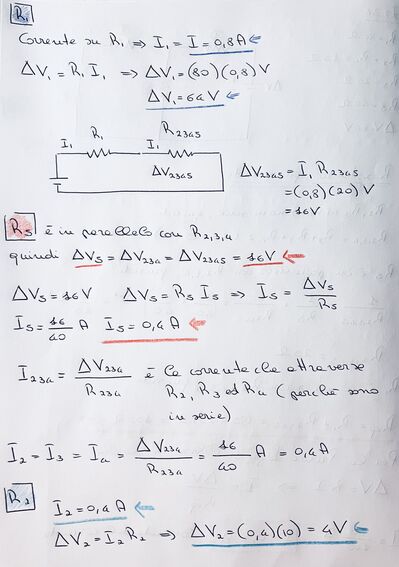 R₁
Corrente su R₁ ⇒ I₁ = I = 0,8A
ΔV₁ = R₁ I₁ ⇒ ΔV₁ = (80)(0,8) V
ΔV₁ = 64 V
I₁ R₁ I₁ R₂₃₄₅
ΔV₂₃₄₅
ΔV₂₃₄₅ = I₁ R₂₃₄₅
= (0,8)(20) V
= 16V
R₅ è in parallelo con R₂,₃,₄
quindi ΔV₅ = ΔV₂₃₄ = ΔV₂₃₄₅ = 16V
ΔV₅ = 16V ΔV₅ = R₅ I₅ ⇒ I₅ = ΔV₅/R₅
I₅ = 16/40 A I₅ = 0,4 A
I₂₃₄ = ΔV₂₃₄/R₂₃₄ è la corrente che attraversa
R₂, R₃ ed R₄ (perché sono
in serie)
I₂ = I₃ = I₄ = ΔV₂₃₄/R₂₃₄ = 16/40 A = 0,4 A
R₂
I₂ = 0,4 A
ΔV₂ = I₂ R₂ ⇒ ΔV₂ = (0,4)(10) = 4V